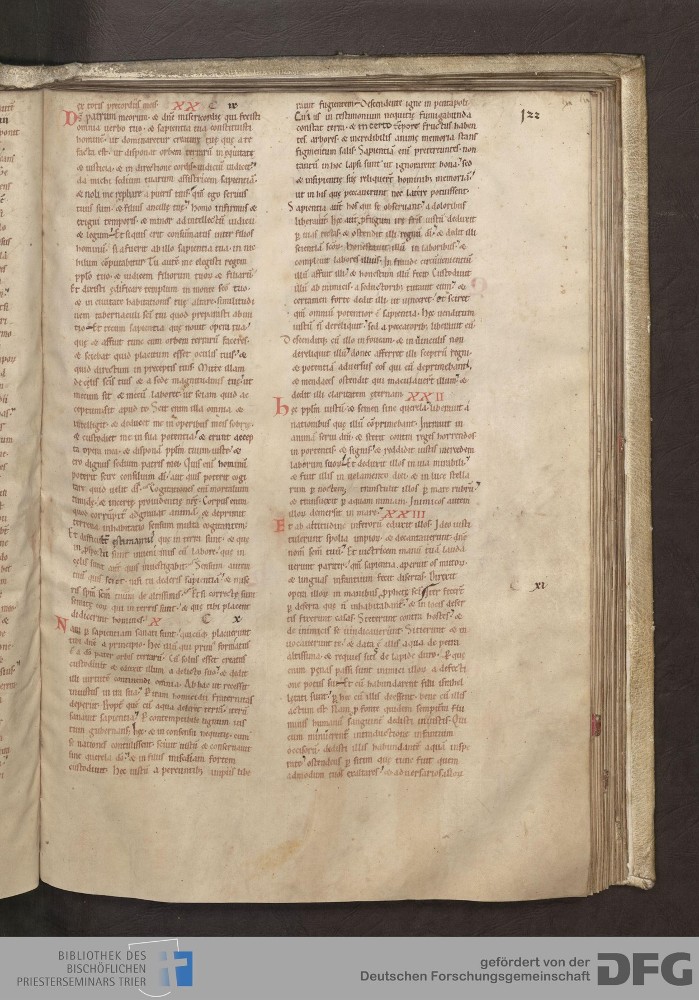 ex totis precordiis meis XX C ix
Ds patrum meorum & dne misericordie qui fecisti
omnia verbo tuo & sapientia tua constituisti
facta est ut disponat orbem terrarum in equitate
da michi sedium tuarum assistricem sapientiam
& noli me reputare a pueris tuis qm ego servus
tuus sum & filius ancille tue homo infirmus &
exigui temporis & minor ad intellectum iudicii
& legum Et si quis erit consummatus inter filios
hominum si afuerit ab illo sapientia tua in nic
hilum computabitur Tu autem me elegisti regem
pplo tuo & iudicem filiorum tuorum & filiarum
Et dixisti edificare templum in monte sco tuo
& in civitate habitationis tue altare similitudi
nem tabernaculi sci tui quod preparasti ab ini
tio Et tecum sapientia que novit opera tua
que & affuit tunc cum orbem terrarum faceres
& sciebat quid placitum esset oculis tuis &
quid directum in preceptis tuis Mitte illam
de celis scis tuis & a sede magnitudinis tue ut
mecum sit & mecum laboret ut sciam quid ac
ceptum sit apud te Scit enim illa omnia &
intelligit & deducet me in operibus meis sobrie
& custodiet me in sua potentia & erunt accep
ta opera mea & disponam pplm tuum iuste &
ero dignus sedium patris mei Quis enim hominum
poterit scire consilium di aut quis poterit cogi
tare quid velit ds Cogitationes enim mortalium
timide & incerte providentie nre Corpus enim
quod corrumpitur aggravat animam & deprimit
terrena inhabitatio sensum multa cogitantem
Et difficile estimamus que in terra sunt & que
in prospectu sunt invenimus cum labore que in
celis sunt autem quis investigabit Sensum autem
tuum quis sciet nisi tu dederis sapientiam & mise
ris spm scm tuum de altissimis Et si correcte sunt
semite eorum qui in terris sunt & que tibi placent
didicerint homines X C x
Nam p sapientiam sanati sunt quicumque placuerunt
tibi dne a principio Hec illum qui primus formatus
e a do pater orbis terrarum cum solus esset creatus
custodivit & eduxit illum a delicto suo & dedit
illi virtutem continendi omnia Ab hac ut recessit
iniustus in ira sua p iram homicidii fraternitas
deperiit Propter quem cum aqua deleret terram iterum
sanavit sapientia p contemptibile lignum ius
tum gubernans Hec & in consensu nequitie cum
se nationes contulissent scivit iustum & conservavit
sine querela do & in filiis misericordiam fortem
custodivit Hec iustum a pereuntibus impiis libe
ravit fugientem Descendente igne in pentapoli
Cui in testimonium nequitie fumigabunda
constat terra & incerto tempore fructus haben
tes arbores & incredibilis anime memoria stans
figmentum salis Sapientiam enim pretereuntes non
tantum in hoc lapsi sunt ut ignorarent bona sed
& insipientie sue reliquerunt hominibus memoriam
ut in his que peccaverunt nec latere potuissent
Sapientia autem hos qui se observant a doloribus
liberavit Hec autem profugum ire fratris iustum deduxit
p vias rectas & ostendit illi regnum di & dedit illi
scientiam scorum honestavit illum in laboribus &
complevit labores illius In fraude circumvenientium
illum affuit illi & honestum illum fecit Custodivit
illum ab inimicis & a seductoribus tutavit eum &
certamen forte dedit illi ut vinceret & sciret
qm omnium potentior e sapientia Hec venditum
iustum n dereliquit sed a peccatoribus liberavit eum
Descenditque cum illo in foveam & in vinculis non
dereliquit illum donec afferret illi sceptrum regni
& potentiam adversus eos qui eum deprimebant
& mendaces ostendit qui maculaverunt illum &
dedit illi claritatem eternam XXII
Hec pplm iustum & semen sine querela liberavit a
nationibus que illum comprimebant Intravit in
animam servi dei & stetit contra reges horrendos
in portentis & signis & reddidit iustis mercedem
laborum suorum Et deduxit illos in via mirabili
& fuit illis in velamento diei & in luce stella
rum p noctem transtulit illos p mare rubrum
& transvexit p aquam nimiam Inimicos autem
illorum demersit in mare XXIII
Et ab altitudine inferorum eduxit illos Ideo iusti
tulerunt spolia impiorum & decantaverunt dne
nomen scm tuum Et victricem manum tuam lauda
verunt pariter qm sapientia aperuit os mutorum
& linguas infantium fecit disertas Direxit
opera illorum in manibus pphete sci Iter fecerunt C xi
p deserta que n inhabitabantur & in locis deser
tis fixerunt casas Steterunt contra hostes &
de inimicis se vindicaverunt Sitierunt & in
vocaverunt te & data e illis aqua de petra
altissima & requies sitis de lapide duro P que
enim penas passi sunt inimici illorum a defecti
one potus sui Et cum habundarent filii israhel
letati sunt p hec cum illis deessent bene cum illis
actum est Nam p fonte quidem sempiterni flu
minis humanum sanguinem dedisti iniustis Qui
cum minuerentur in traductione infantium
occisorum dedisti illis habundantem aquam inspe
rate ostendens p sitim que tunc fuit quem
admodum tuos exaltares & adversarios illorum
122
BIBLIOTHEK DES
BISCHÖFLICHEN
PRIESTERSEMINARS TRIER
gefördert von der
Deutschen Forschungsgemeinschaft
DFG